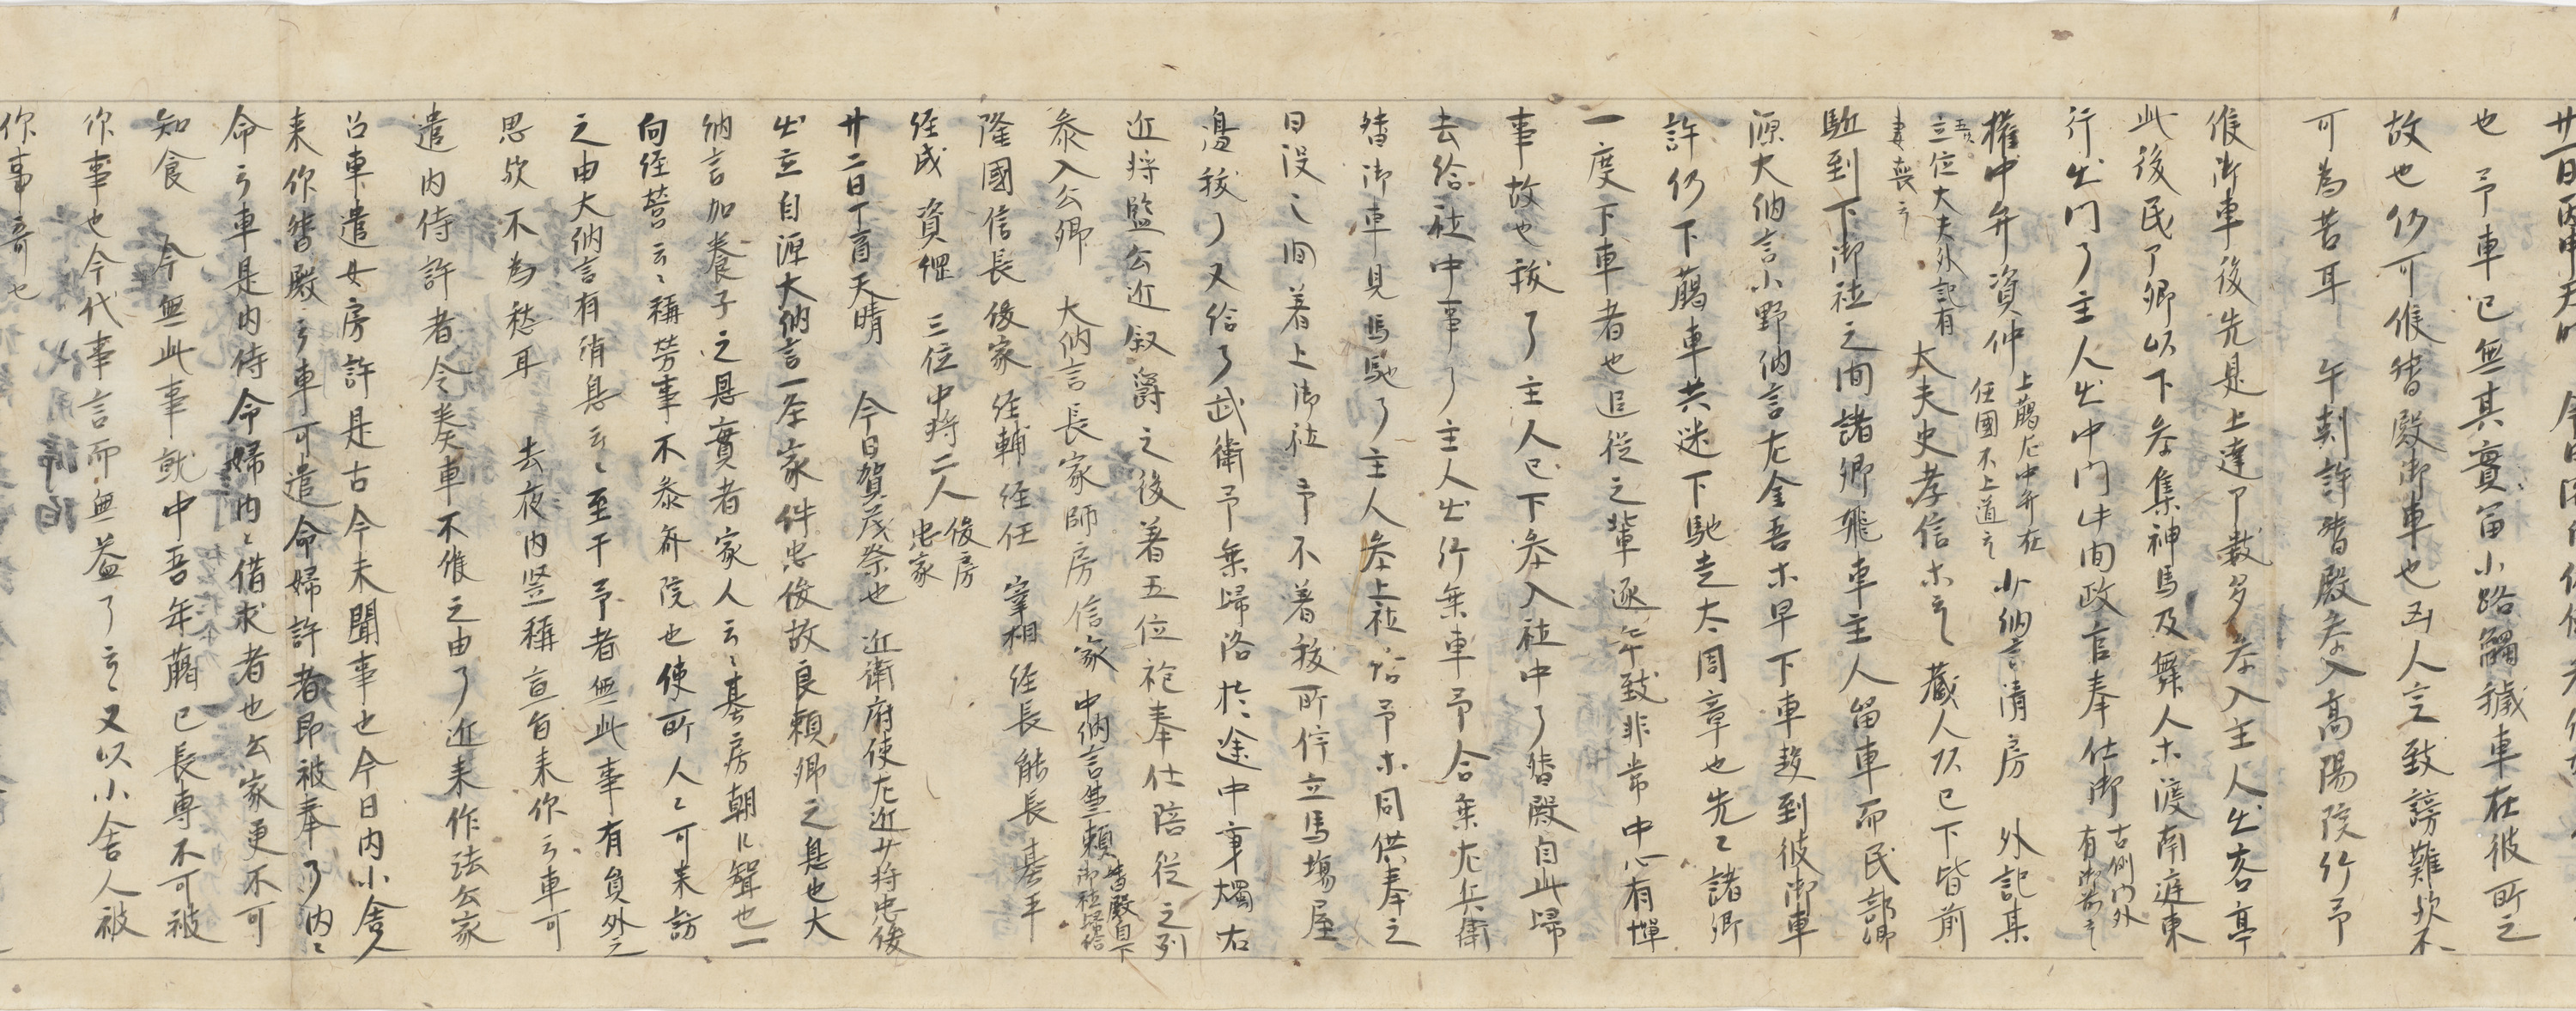 也 予車已無其實富小路觸穢車在彼所之
故也仍可候殿御車也西人定致謗難歟不
可為苦耳 午剋許殿参入高陽院行予
候御車後先是上達卩数多参入主人出客亭
此後民卩卿以下参集神馬及舞人ホ渡南庭東
行出門了主人出中門此間政官奉仕御
古例門外
有御前云
權中弁資仲
上﨟左中弁在
任國不上道云
少納言清房 外記某
三位大夫外記有
妻喪云
大夫史孝信ホ云 藏人以已下皆前
駈到下御社之間諸卿飛車主人留車而民部卿
源大納言小野納言左金吾ホ早下車趍到彼御車
許仍下﨟車共迷下馳走太周章也先々諸卿
一度下車者也追從之輩逐年致非常中心有憚
事故也祓了主人已下参入社中了殿自此歸
去給社中事了主人出行乗車予合乗左兵衛
御車見馬馳了主人参上社給予ホ同供奉之
日没之間着上御社 予不着祓所佇立馬場屋
邊祓了又給了武衛予乗歸洛於途中秉燭右
近将監公近叙爵之後着五位袍奉仕陪從之列
参入公卿 大納言長家師房信家 中納言兼頼
殿自下
御社歸給
隆國信長俊家 經輔經任 宰相經長能長基平
經成 資綱 三位中将二人
俊房
忠家
廿二日丁酉天晴 今日賀茂祭也 近衛府使左近少将忠俊
出立自源大納言一条家件忠俊故良頼卿之息也大
納言加養子之息實者家人云々基房朝臣聟也一
向經營云々稱勞事不参斎院也使所人々可来訪
之由大納言有消息云々至于予者無此事有負外之
思歟不為愁耳 去夜内竪稱宣旨来仰云車可
遣内侍許者令奏車不候之由了近来作法公家
召車遣女房許是古今未聞事也今日内小舎人
来仰殿云車可遣命婦許者即被奉了内々
命云車是内侍命婦内々借求者也公家更不可
知食 今無此事就中吾年﨟已長専不可被
仰事也今代事言而無益了云又以小舎人被
仰事奇也